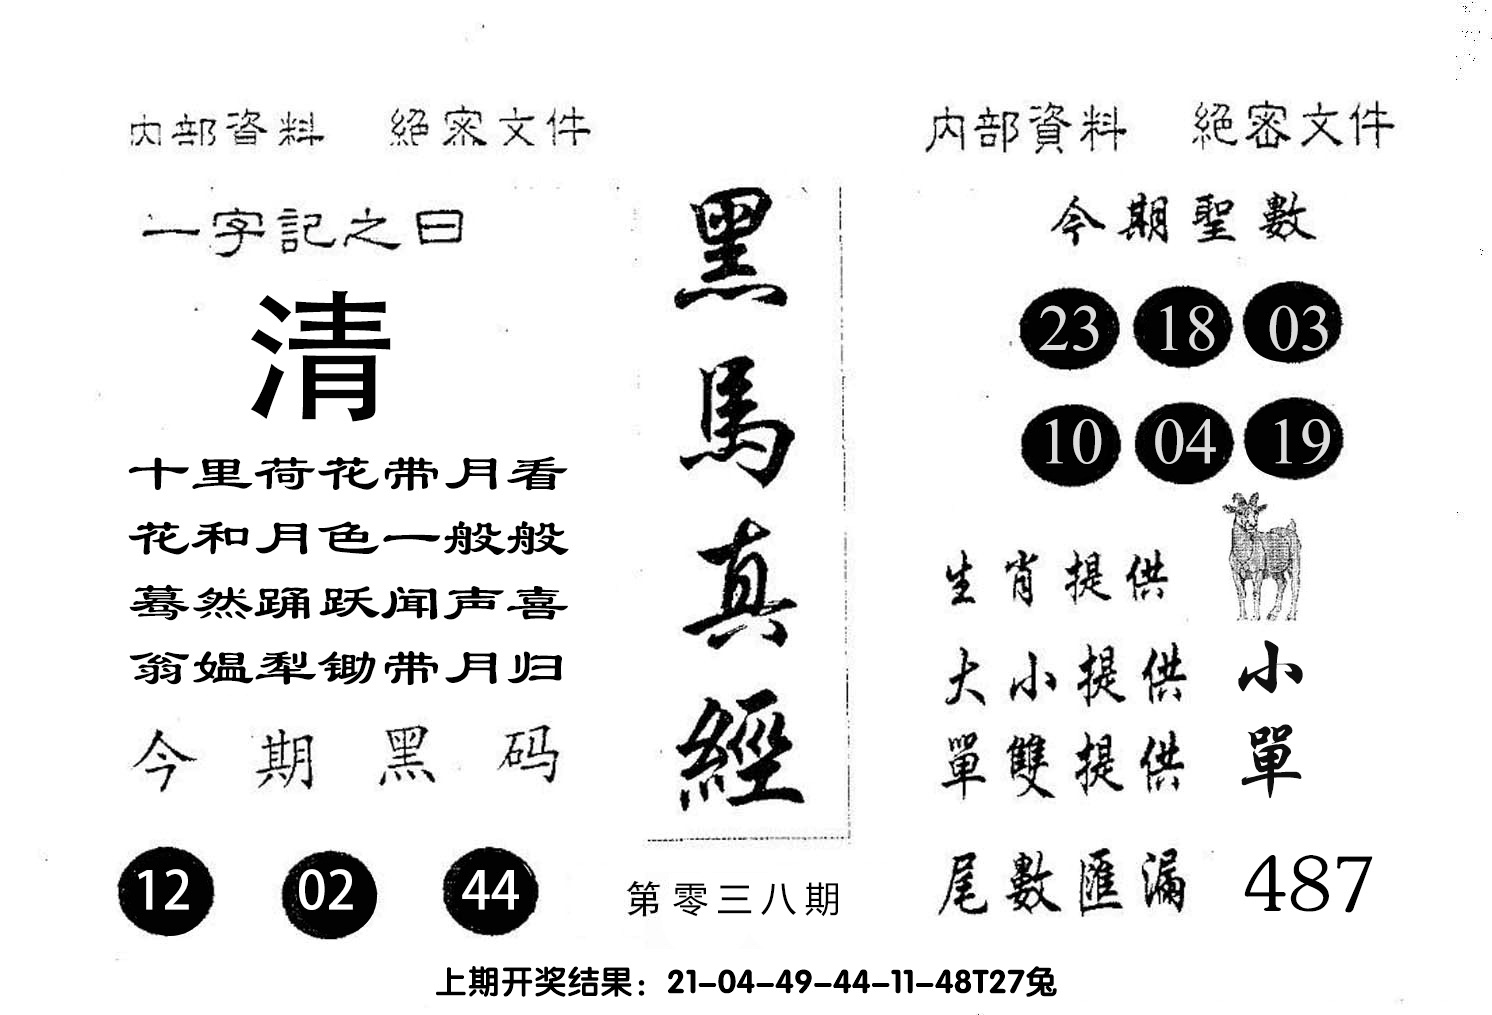 內部資料 絕密文件
一字記之曰
清
十里荷花带月看
花和月色一般般
蓦然踊跃闻声喜
翁媪犁锄带月归
今期黑码
12 02 44
黑馬真經
第零三八期
內部資料 絕密文件
今期聖數
23 18 03
10 04 19
生肖提供
大小提供 小
單雙提供 單
尾數匯漏 487
上期开奖结果：21-04-49-44-11-48T27兔